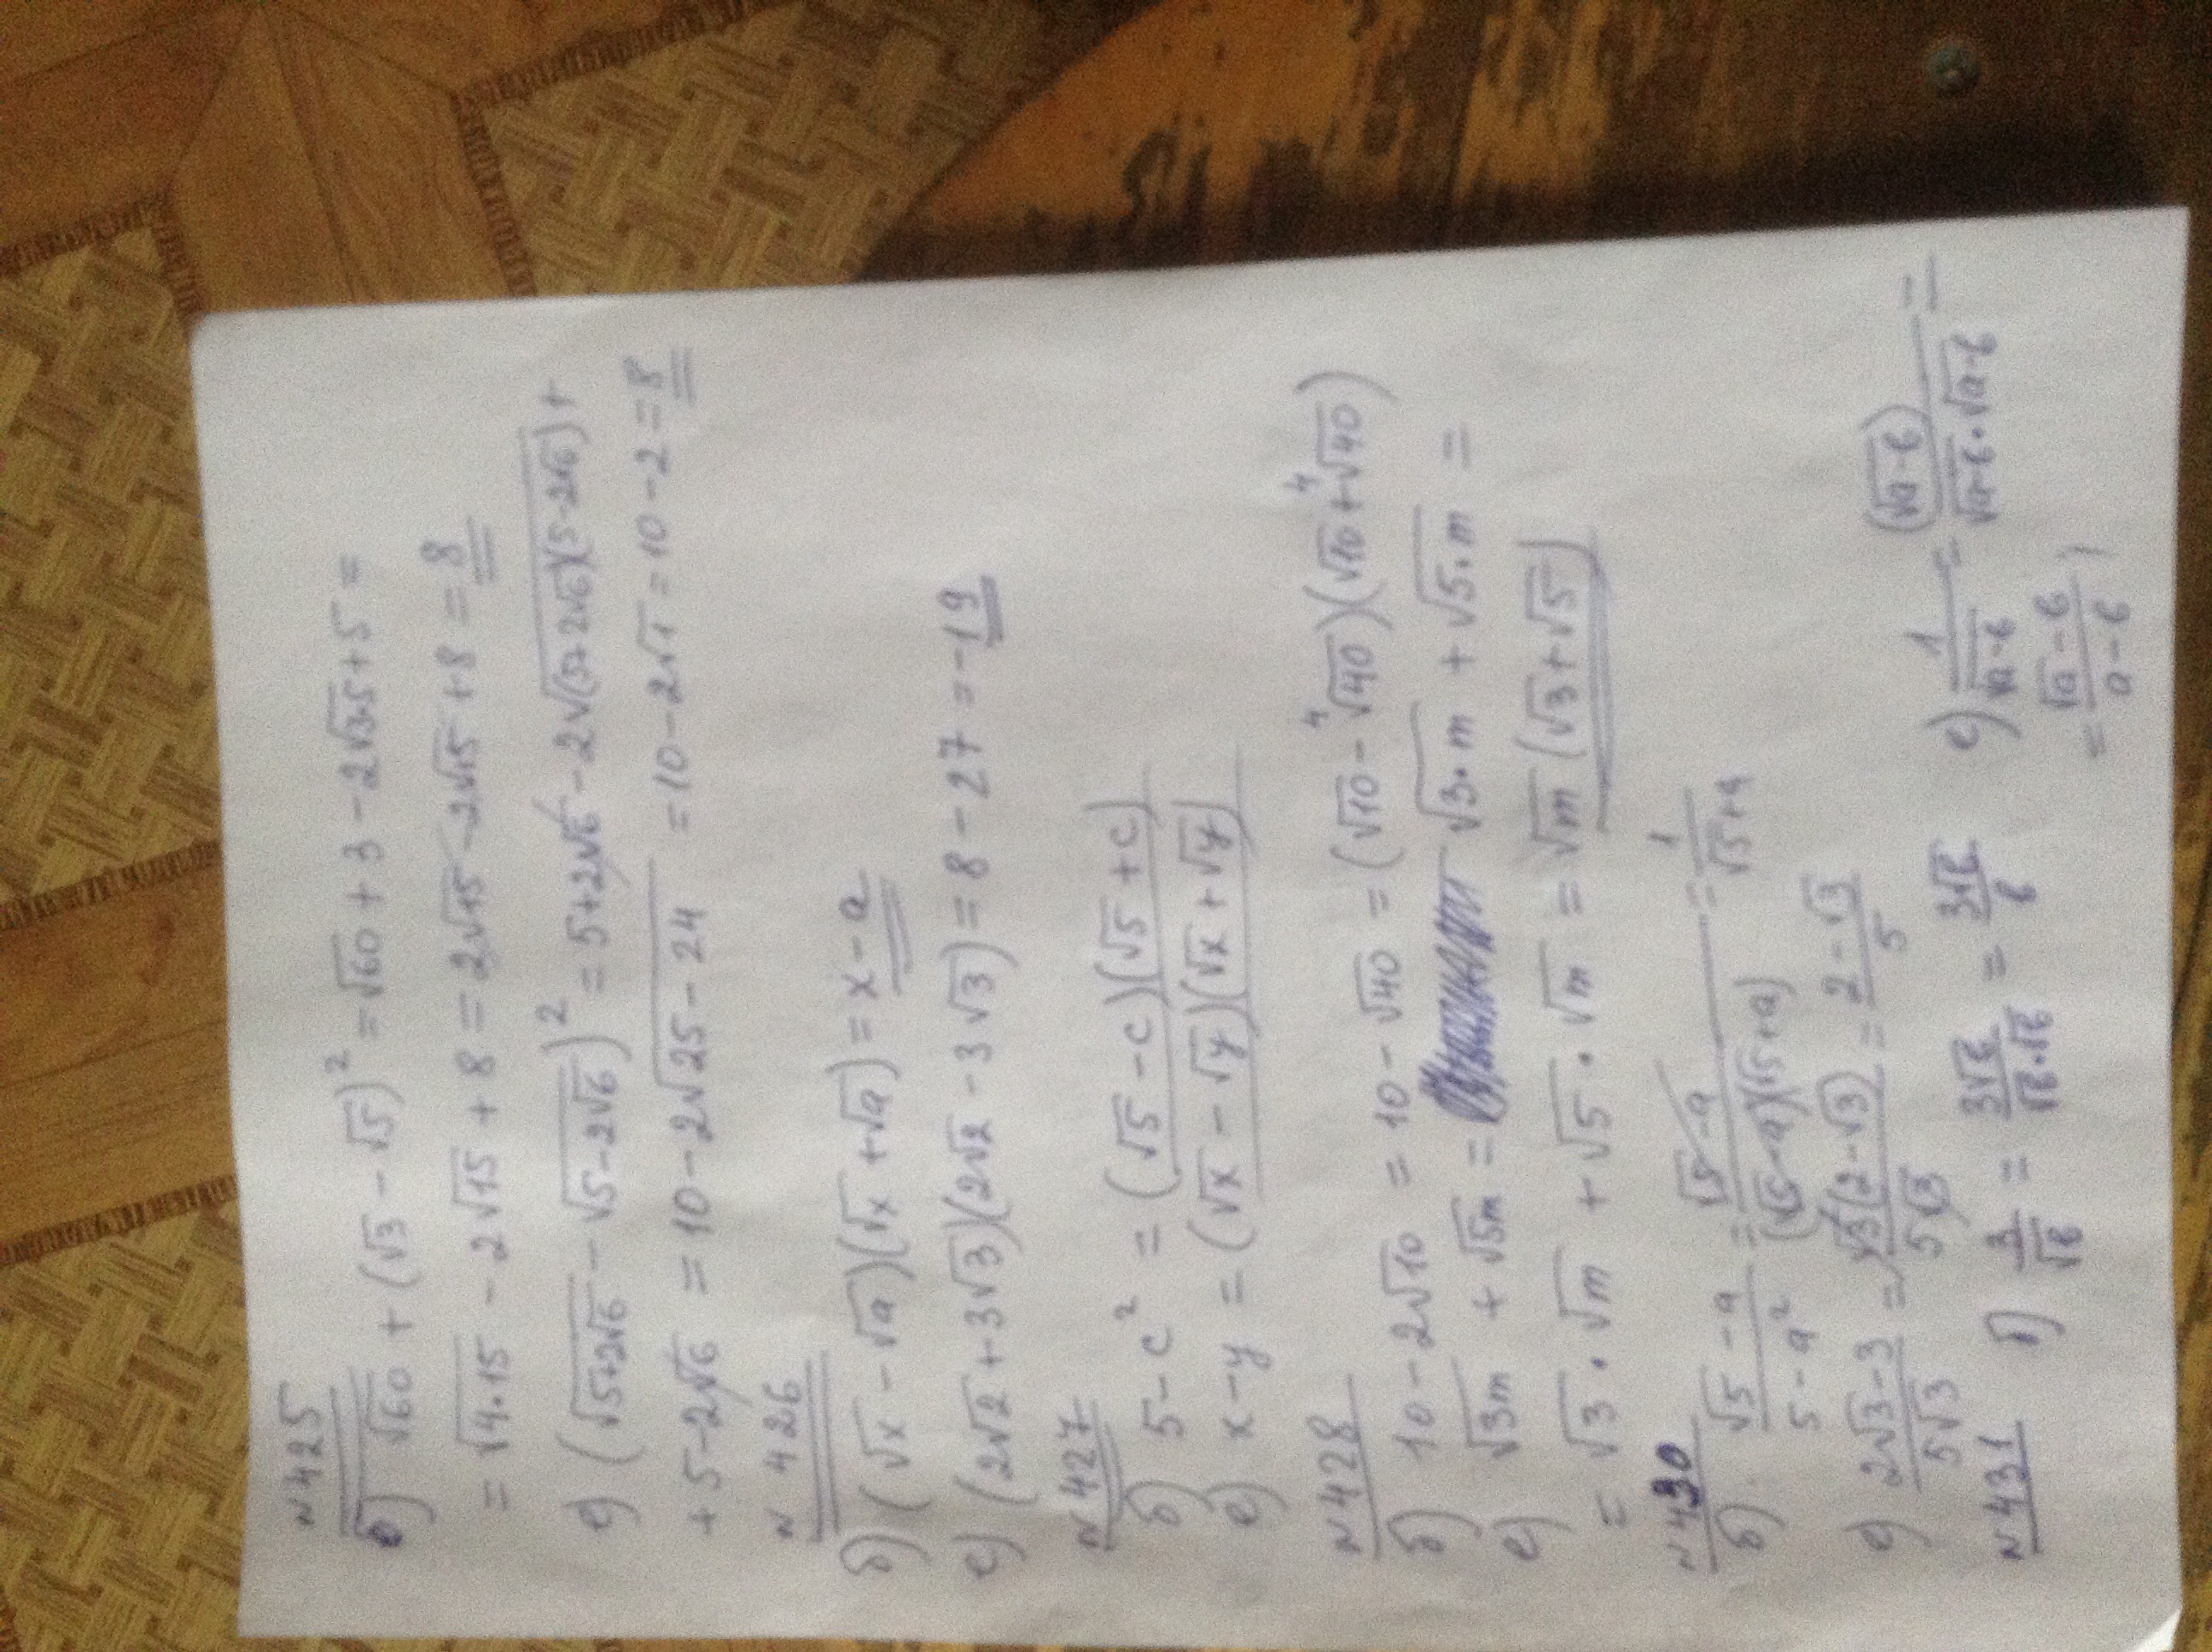 N 425
б) √60 + (√3 - √5)² = √60 + 3 - 2√3·5 + 5 =
= √4·15 - 2√15 + 8 = 2√15 - 2√15 + 8 = 8
е) (√5+2√6 - √5-2√6)² = 5+2√6 - 2√(5+2√6)(5-2√6) +
+ 5-2√6 = 10 - 2√25-24 = 10 - 2√1 = 10 - 2 = 8
N 426
б) (√x - √a)(√x + √a) = x - a
е) (2√2 + 3√3)(2√2 - 3√3) = 8 - 27 = -19
N 427
б) 5 - c² = (√5 - c)(√5 + c)
е) x - y = (√x - √y)(√x + √y)
N 428
б) 10 - 2√10 = 10 - √40 = (√10 - ⁴√40)(√10 + ⁴√40)
е) √3m + √5m = √3·m + √5·m =
= √3·√m + √5·√m = √m (√3+√5)
N 430
б) √5 - a / 5 - a² = √5 - a / (√5 - a)(√5 + a) = 1 / √5 + a
е) 2√3 - 3 / 5√3 = √3(2 - √3) / 5√3 = 2 - √3 / 5
N 431
б) 3 / √в = 3√в / √в·√в = 3√в / в
е) 1 / √a-в = (√a-в) / √a-в·√a-в =
= √a-в / a-в